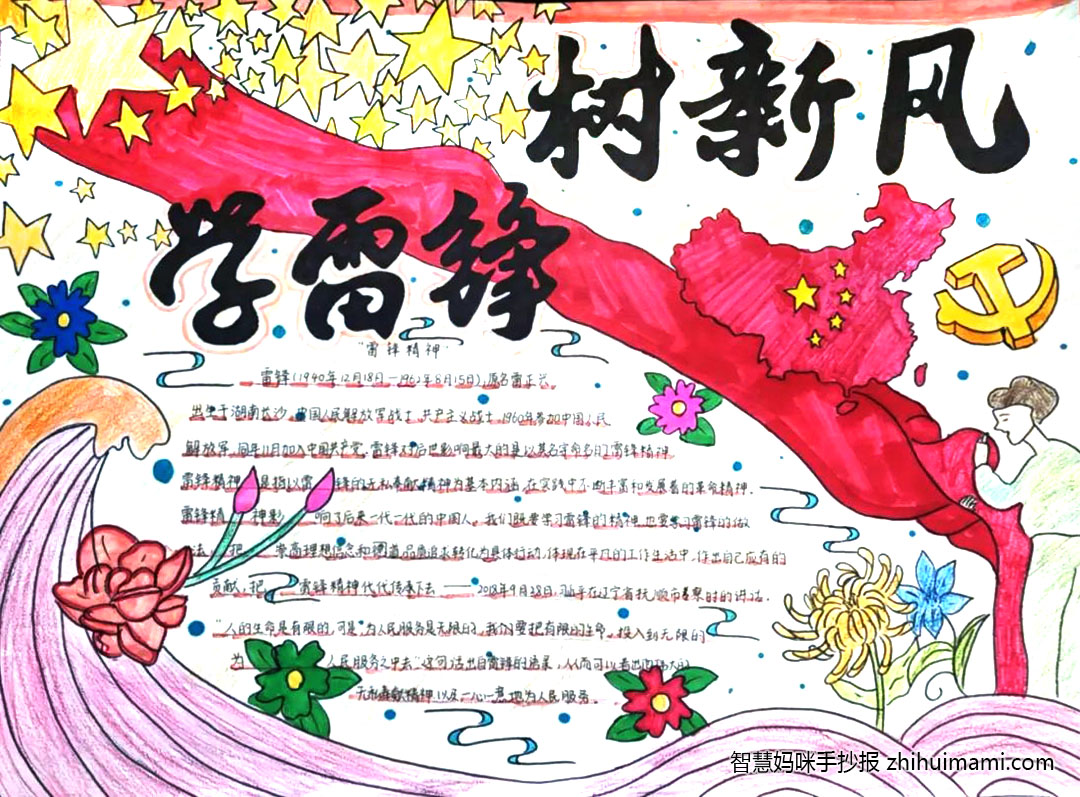 树新风
学雷锋
"雷锋精神"
雷锋(1940年12月18日—1962年8月15日),原名雷正兴
出生于湖南长沙,中国人民解放军战士,共产主义战士,1960年参加中国人民
解放军,同年11月加入中国共产党.雷锋对后世影响最大的是以其名字命名的雷锋精神
雷锋精神 是指以雷锋的无私奉献精神为基本内涵,在实践中不断丰富和发展着的革命精神.
雷锋精神影响了后来一代一代的中国人.我们既要学习雷锋的精神,也要学习雷锋的做
法,把崇高理想信念和道德品质追求转化为具体行动,体现在平凡的工作生活中,作出自己应有的
贡献,把雷锋精神代代传承下去——2018年9月28日,习近平在辽宁省抚顺市考察时的讲话.
"人的生命是有限的,可是 为人民服务是无限的,我们要把有限的生命,投入到无限的
为人民服务之中去"这句话出自雷锋的语录,从而可以看出雷锋大的
无私奉献精神,以及一心一意地为人民服务.
智慧妈咪手抄报 zhihuimami.com